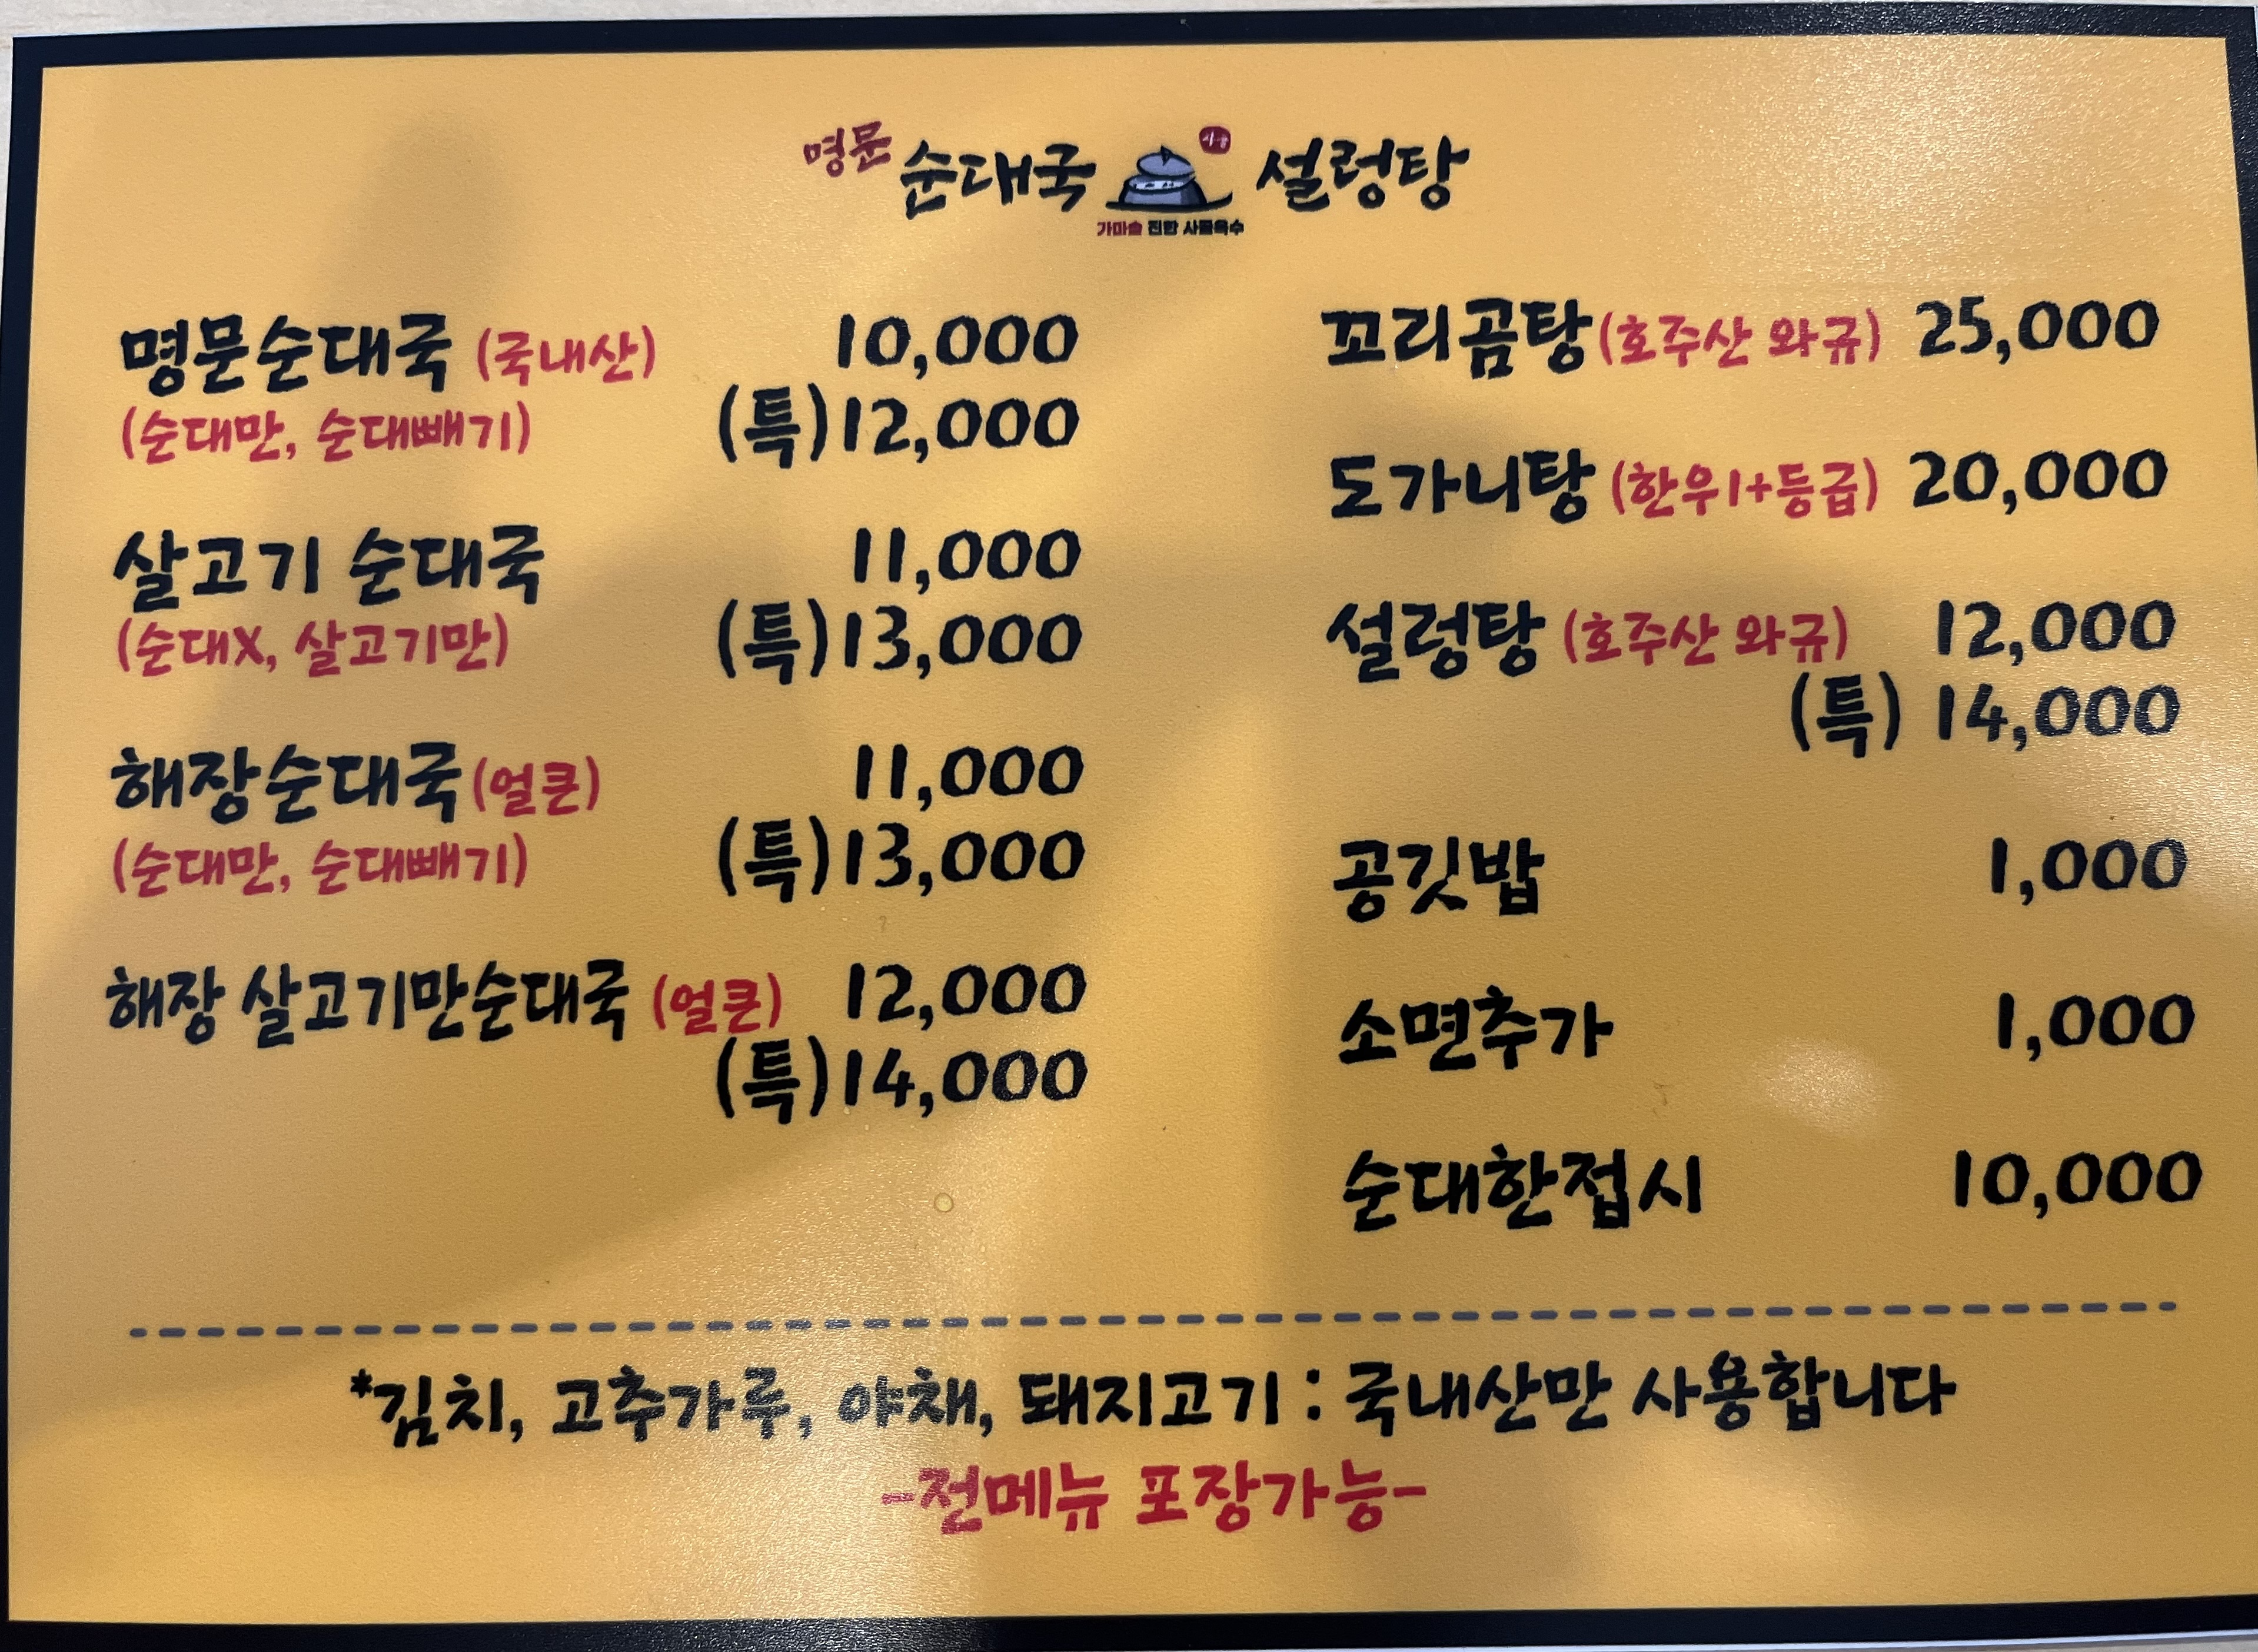 명문 순대국 설렁탕
가마솥 진한 사골육수
명문순대국 (국내산) 10,000
(순대만, 순대빼기) (특)12,000
살고기 순대국 11,000
(순대X, 살고기만) (특)13,000
해장순대국(얼큰) 11,000
(순대만, 순대빼기) (특)13,000
해장 살고기만순대국 (얼큰) 12,000
(특)14,000
꼬리곰탕(호주산 와규) 25,000
도가니탕 (한우1+등급) 20,000
설렁탕 (호주산 와규) 12,000
(특) 14,000
공깃밥 1,000
소면추가 1,000
순대한접시 10,000
*김치, 고추가루, 야채, 돼지고기 : 국내산만 사용합니다
-전메뉴 포장가능-